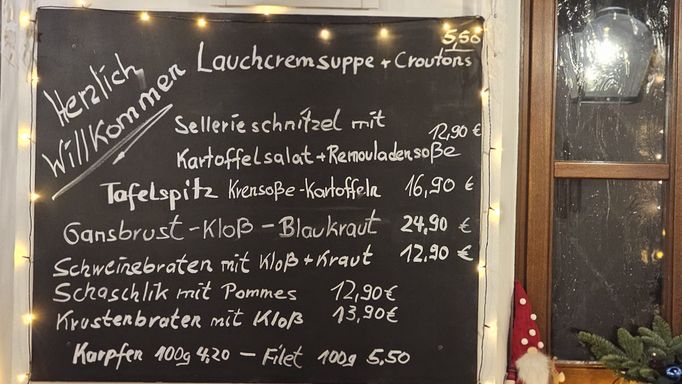 Herzlich
Willkommen
5,50
Lauchcremsuppe + Croutons
Sellerieschnitzel mit 12,90 €
Kartoffelsalat + Remouladensoße
Tafelspitz Krensoße - Kartoffeln 16,90 €
Gansbrust - Kloß - Blaukraut 24,90 €
Schweinebraten mit Kloß + Kraut 12,90 €
Schaschlik mit Pommes 12,90 €
Krustenbraten mit Kloß 13,90 €
Karpfen 100g 4,20 - Filet 100g 5,50